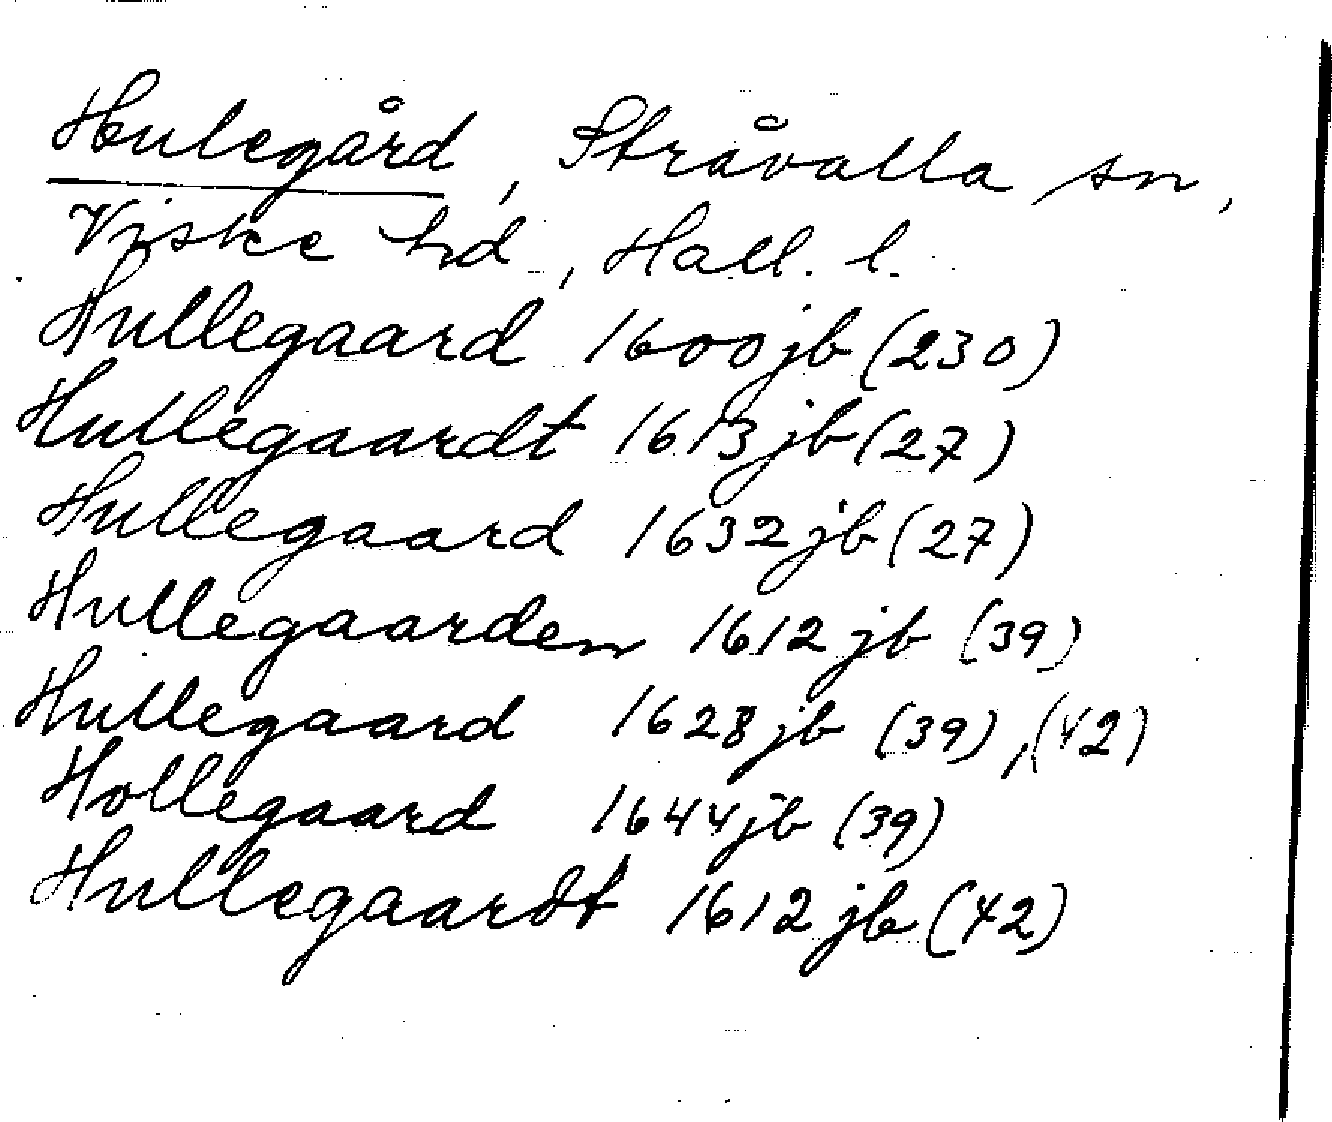 Hulegård, Stråvalla sn,
Viske hd, Hall. l.
Hullegaard 1600 jb (230)
Hullegaardt 1613 jb (27)
Hullegaard 1632 jb (27)
Hullegaarden 1612 jb (39)
Hullegaard 1628 jb (39), (42)
Hollegaard 1644 jb (39)
Hullegaardt 1612 jb (42)